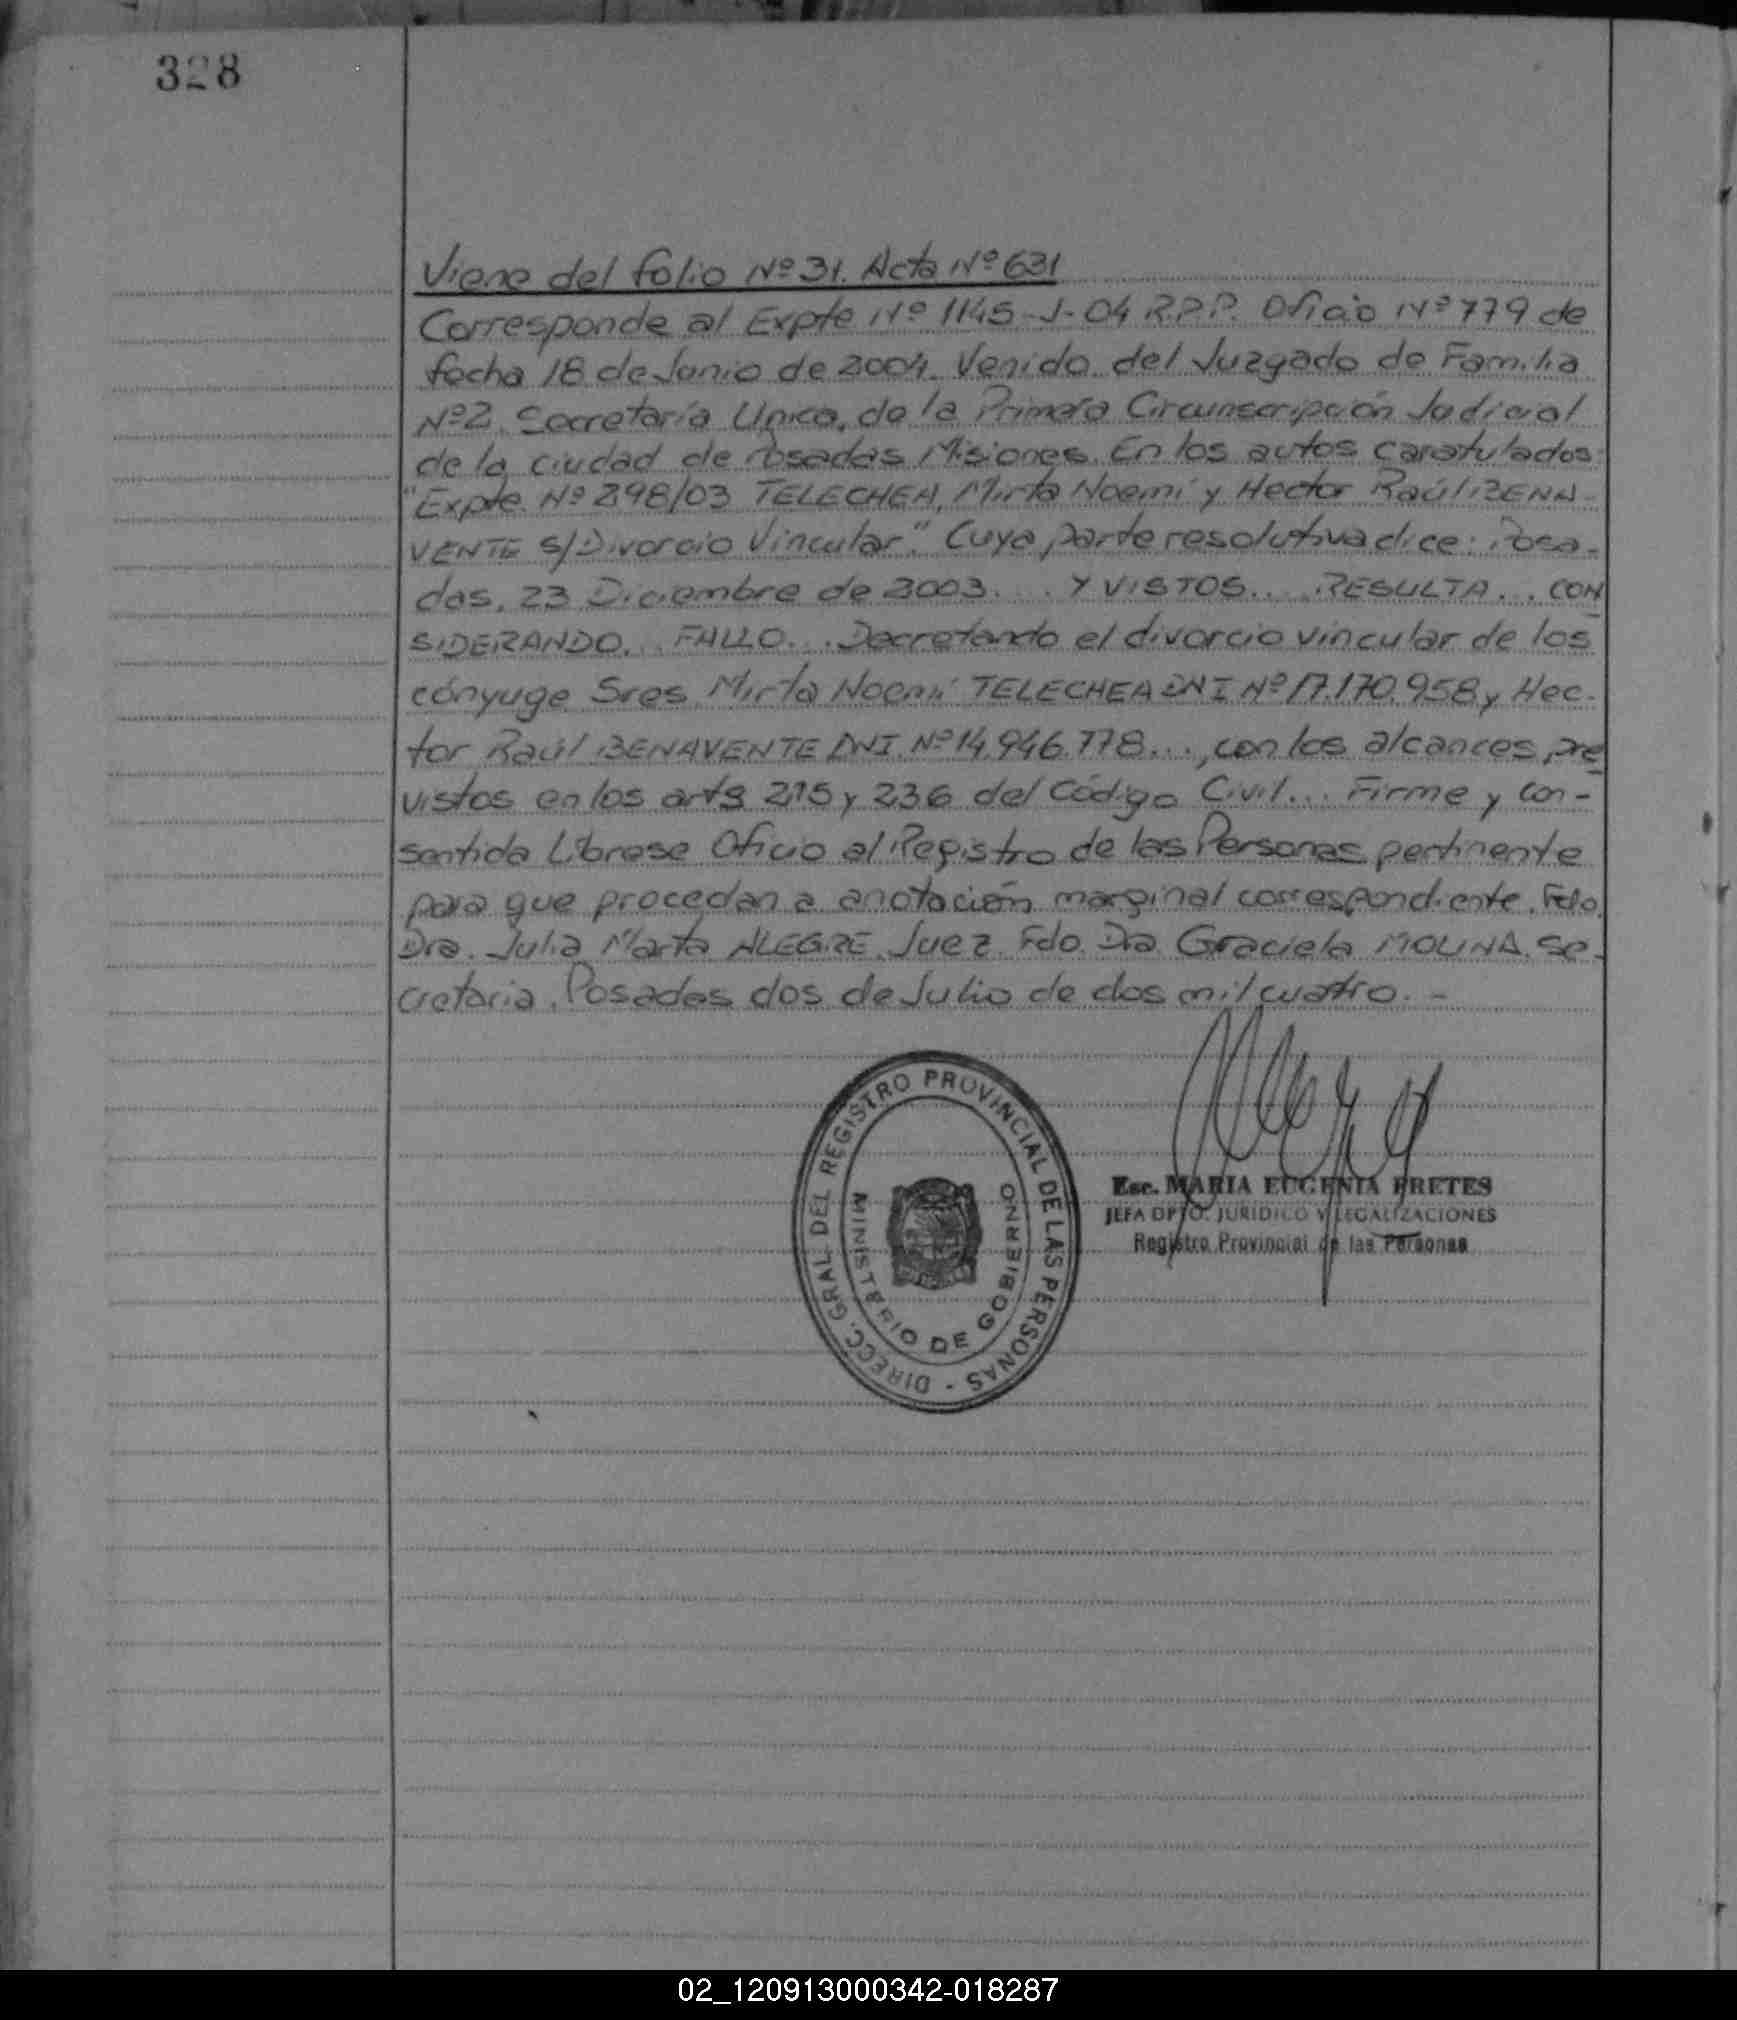 328
Viene del folio Nº 31. Acta Nº 631
Corresponde al Expte Nº 1145-J-04 R.P.P. Oficio Nº 779 de
fecha 18 de Junio de 2004. Venido del Juzgado de Familia
Nº2. Secretaría Unica, de la Primera Circunscripción Judicial
de la ciudad de Posadas Misiones. En los autos caratulados:
"Expte. Nº 298/03 TELECHEA, Mirta Noemí y Hector Raúl BENA-
VENTE S/Divorcio Vincular." Cuya parte resolutiva dice: Posa-
das, 23 Diciembre de 2003.... Y VISTOS.... RESULTA... CON
SIDERANDO... FALLO... Decretando el divorcio vincular de los
cónyuge Sres. Mirta Noemí TELECHEA DNI Nº 17.170.958 y Hec-
tor Raúl BENAVENTE DNI Nº 14.946.778..., con los alcances pre
vistos en los arts 215 y 236 del Código Civil... Firme y con-
sentida Librese Oficio al Registro de las Personas pertinente
para que procedan a anotación marginal correspondiente. Fdo.
Dra. Julia Marta ALEGRE. Juez. Fdo. Dra. Graciela MOLINA. Se-
cretaria. Posadas dos de Julio de dos mil cuatro. -
DIRECC. GRAL DEL REGISTRO PROVINCIAL DE LAS PERSONAS -
MINISTERIO DE GOBIERNO
Esc. MARIA EUGENIA FRETES
JEFA DPTO. JURIDICO Y LEGALIZACIONES
Registro Provincial de las Personas
02_120913000342-018287